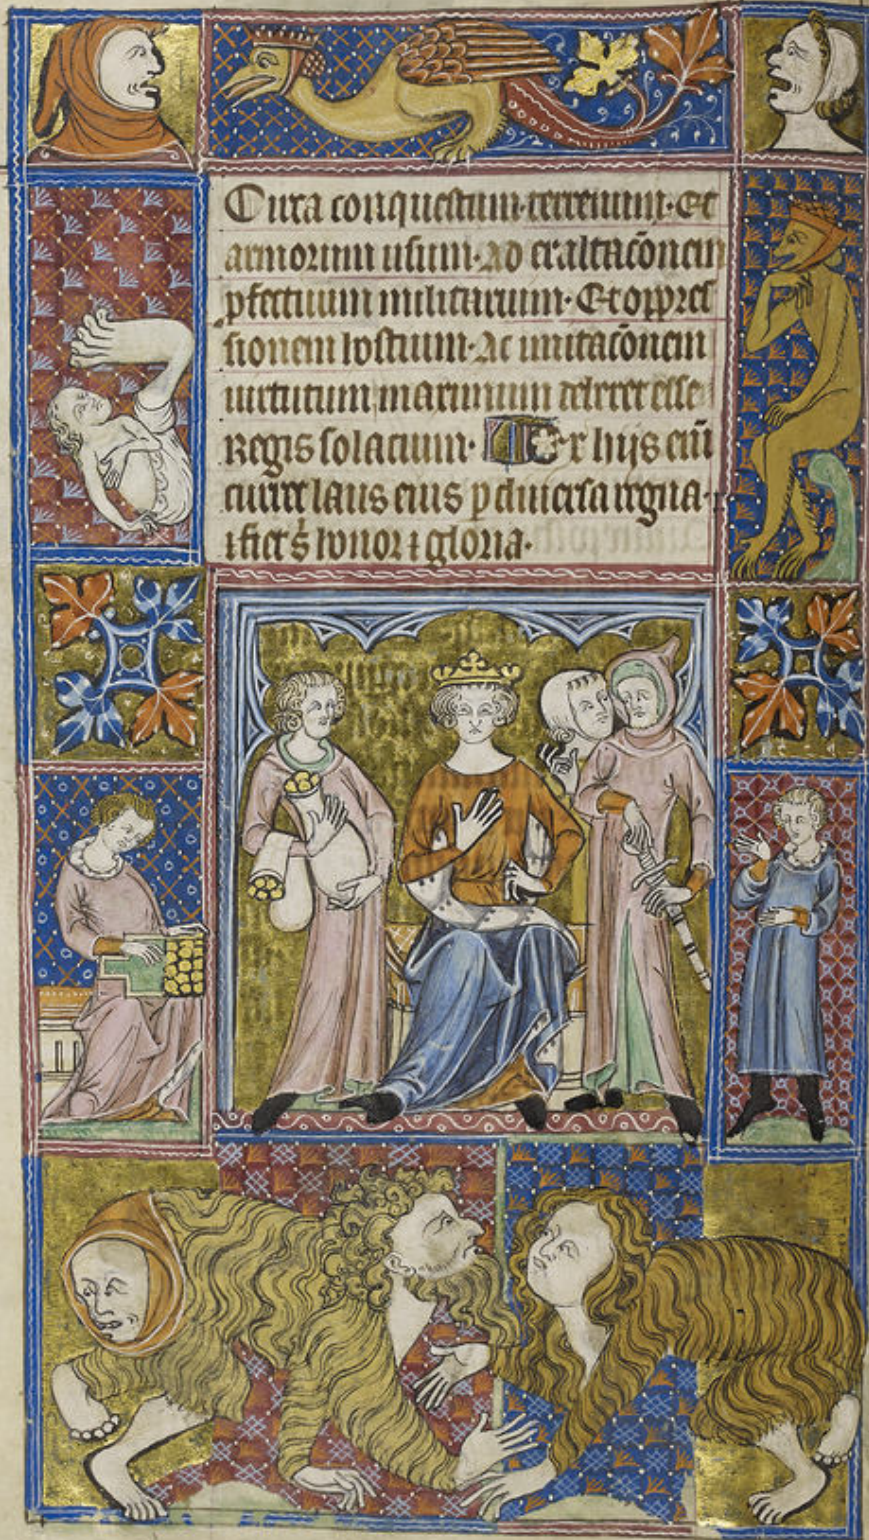 Circa conquestum·terrenum·Et
armorum usum·Ad exaltac̄onem
ꝓfectuum militarium·Et oppres
sionem hostium·Ac imitac̄onem
uirtutum maximum deberet esse
Regis solacium· Ex hijs eni̅
curret laus eius ꝑ diuersa regna·
⁊ honor ⁊ gloria·